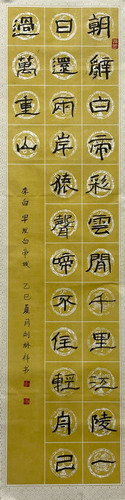 朝辭白帝彩雲間千里江陵一
日還兩岸猿聲啼不住輕舟已
過萬重山
李白 早發白帝城 乙巳夏月